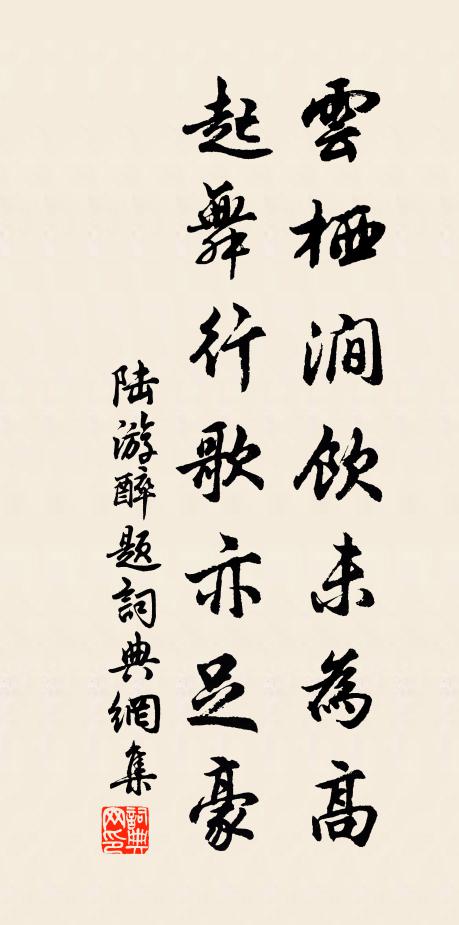 雲栖澗飲未為高
起舞行歌亦足豪
陆游醉题詞典網集
詞典网印